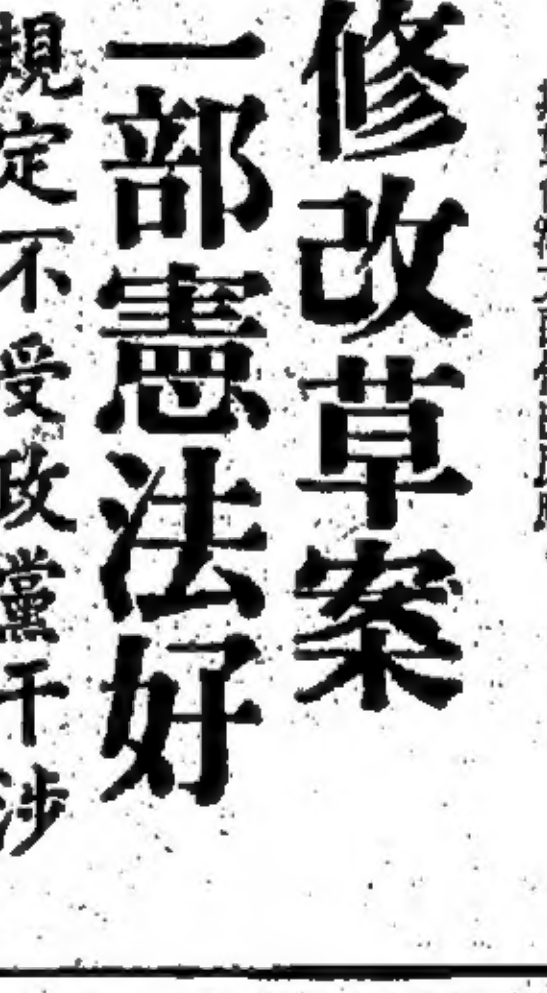 修改草案
一部憲法好
規定不受政黨干涉